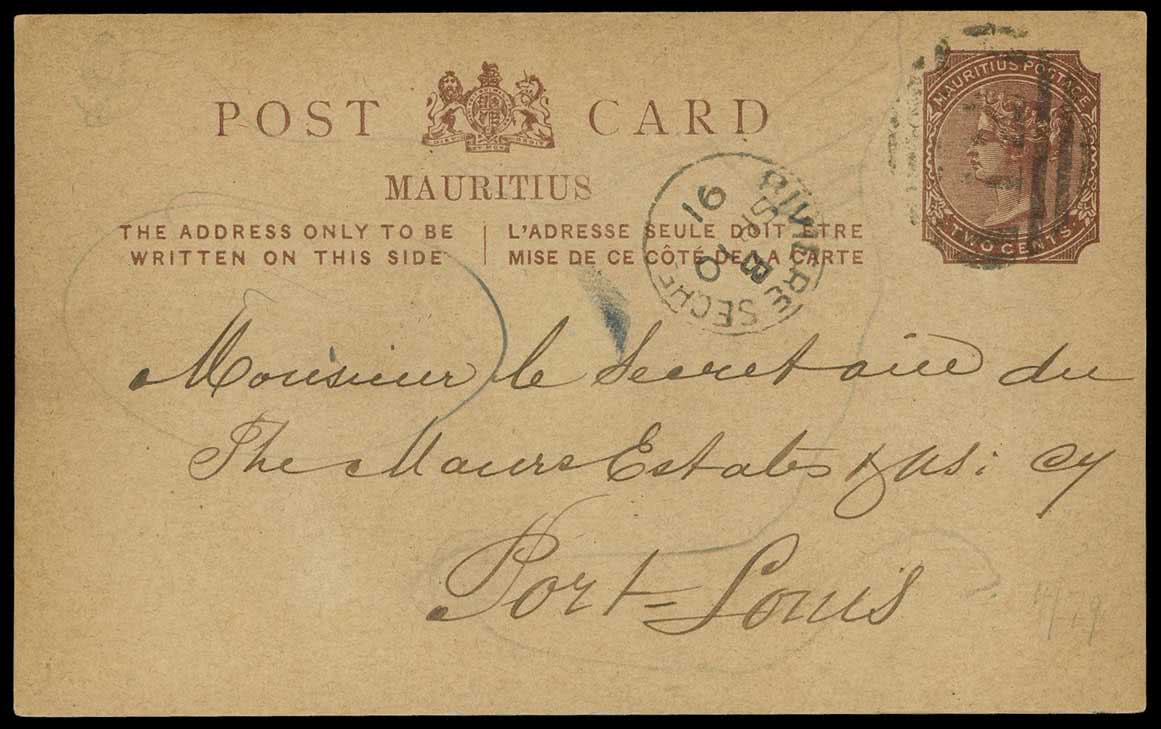 POST CARD
MAURITIUS
THE ADDRESS ONLY TO BE
WRITTEN ON THIS SIDE
L'ADRESSE SEULE DOIT ÊTRE
MISE DE CE CÔTÉ DE LA CARTE
MAURITIUS POSTAGE
TWO CENTS
RIVIERE SECHE
SP
91
Monsieur le Secretaire du
The Maurs Estates & As: Cy
Port-Louis